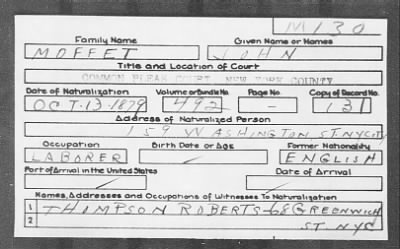 M130
Family Name Given Name or Names
MOFFET JOHN
Title and Location of Court
COMMON PLEAS COURT, NEW YORK COUNTY
Date of Naturalization Volume or Bundle No. Page No Copy of Record No.
OCT. 13. 1879 492 - 131
Address of Naturalized Person
159 WASHINGTON ST. NYCITY
Occupation Birth Date or Age Former Nationality
LABORER ENGLISH
Port of Arrival in the United States Date of Arrival
Names, Addresses and Occupations of Witnesses To Naturalization
1 THOMPSON ROBERTS-68 GREENWICH
2 ST. NYC